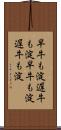 早牛も淀遅牛
も淀早牛も淀
遅牛も淀